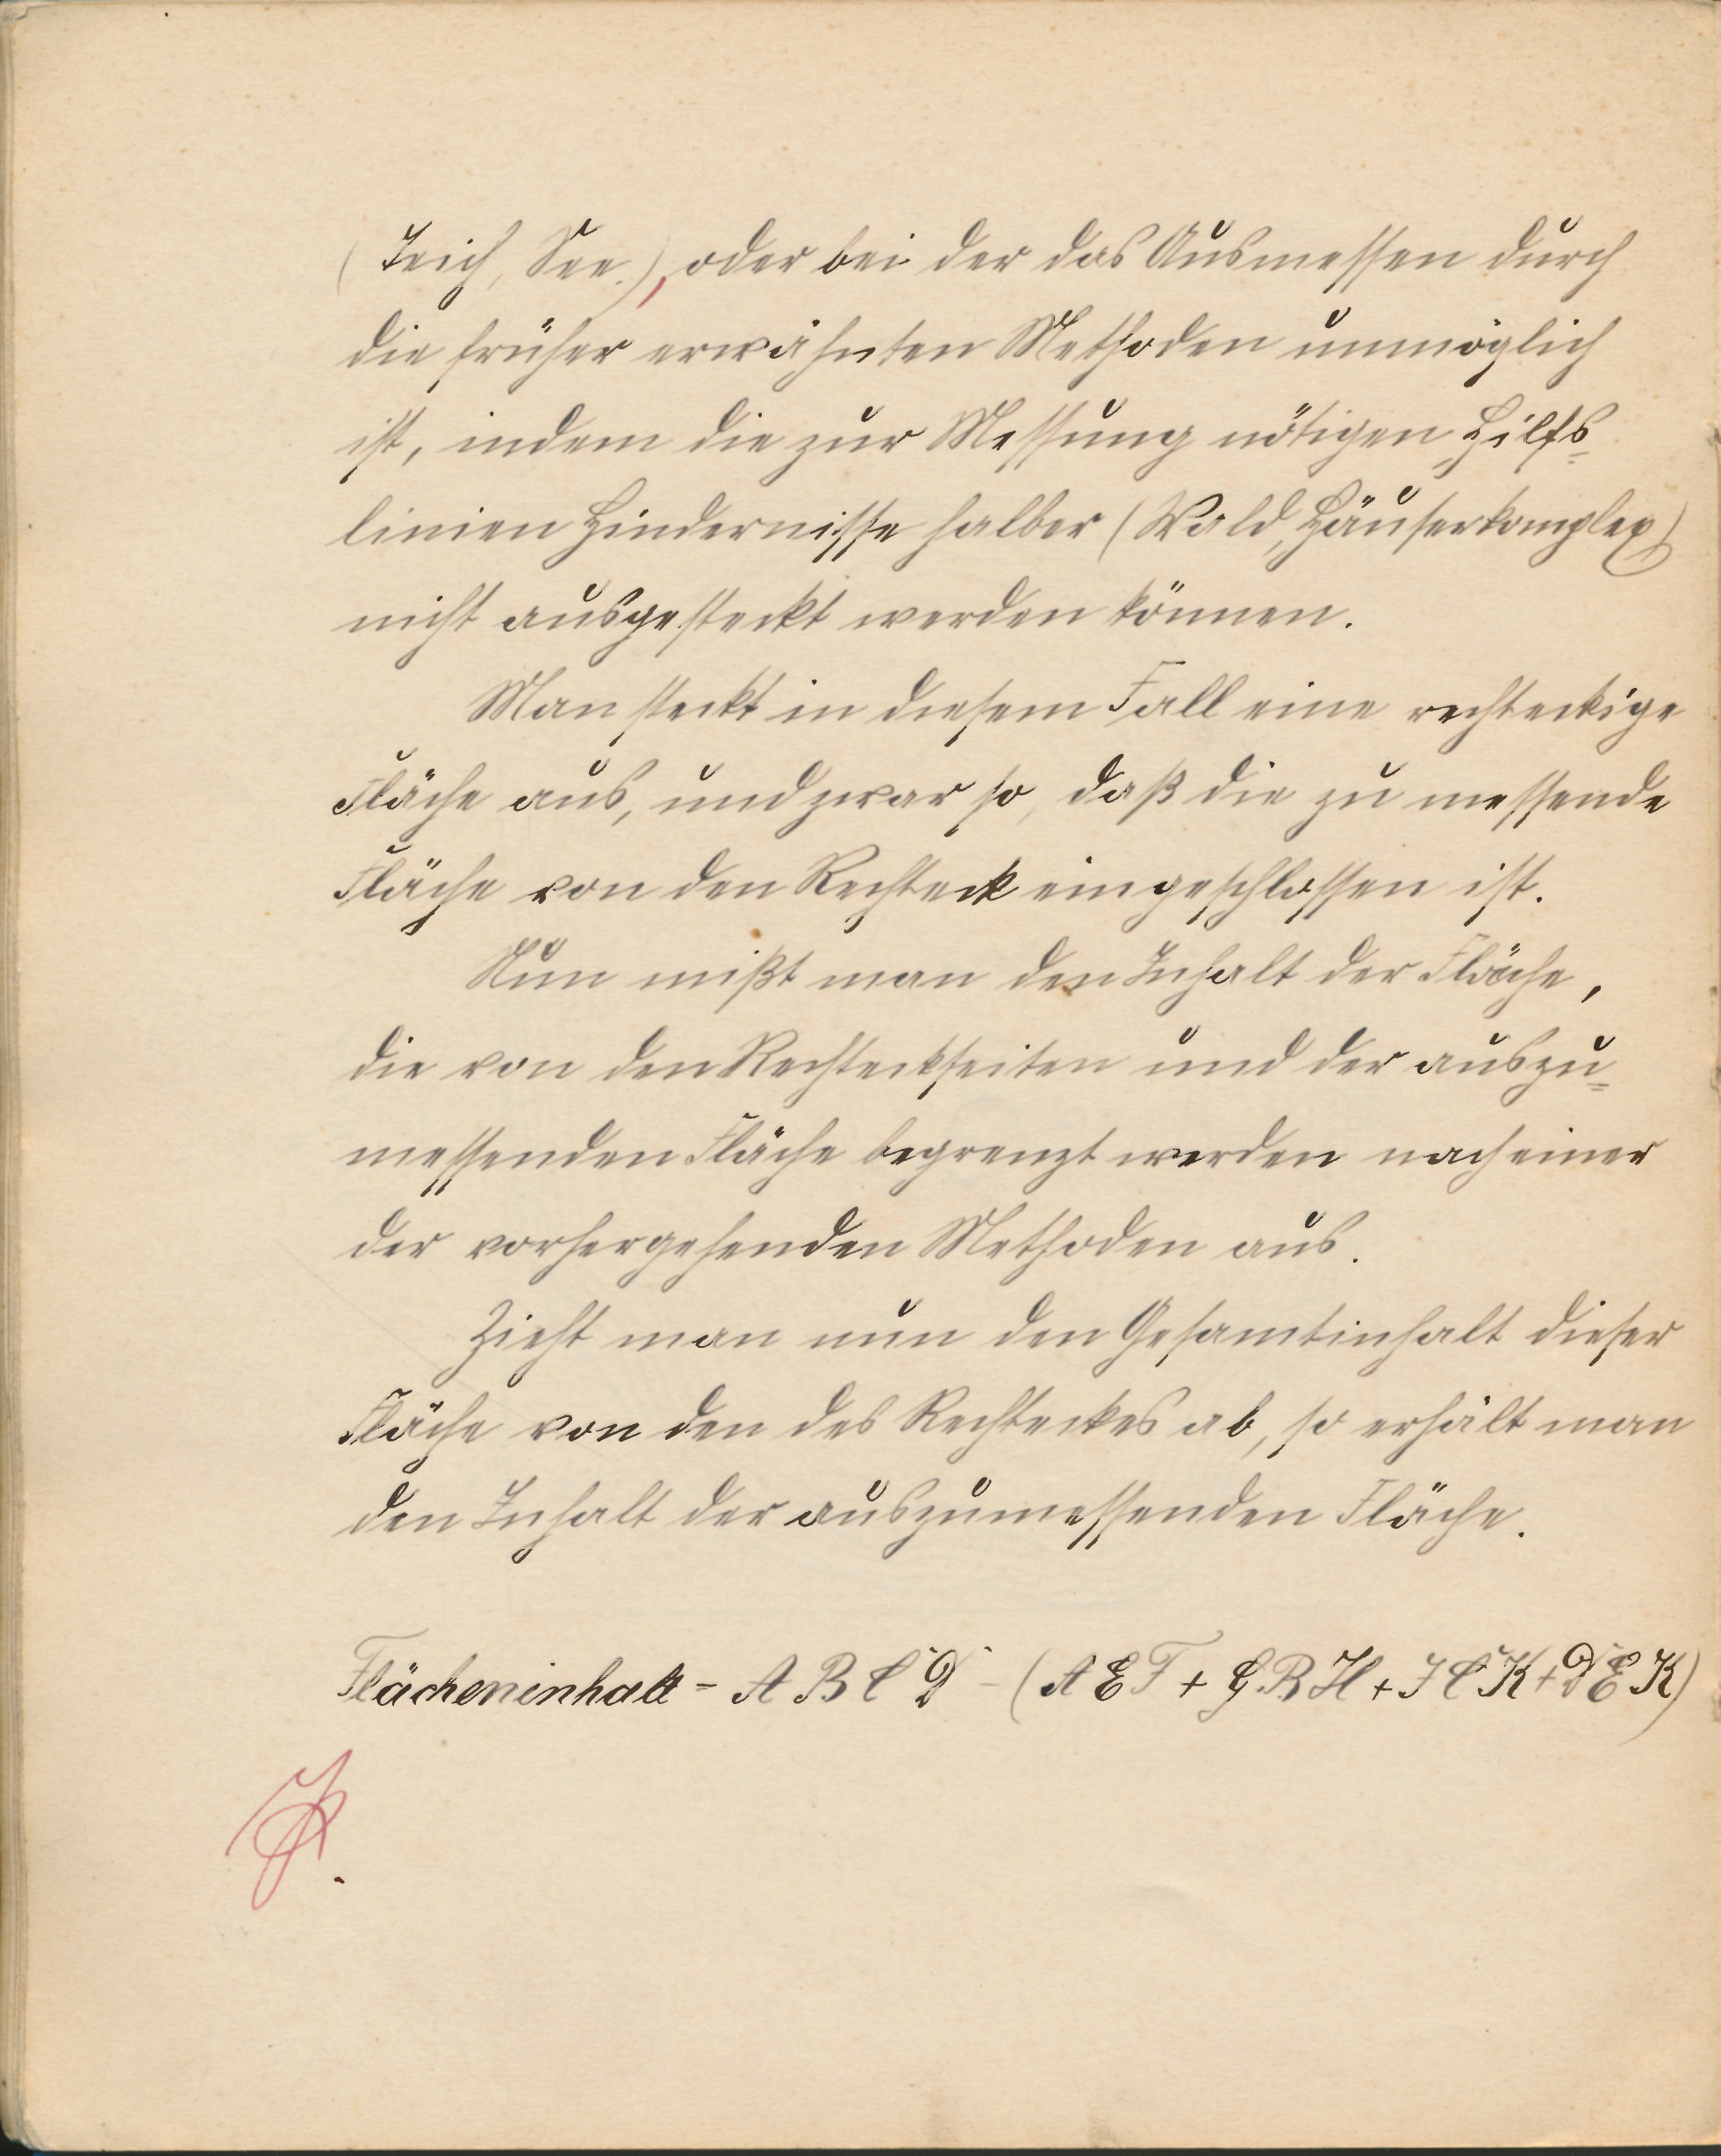 (Teich, See.), oder bei der das Ausmessen durch
die früher erwähnten Methoden unmöglich
ist, indem die zur Messung nötigen Hilfs=
linien Hindernisse halber (Wald, Häuserkomplex)
nicht ausgesteckt werden können.
Man steckt in diesem Fall eine rechteckige
Fläche aus, und zwar so, daß die zu messende
Fläche von den Rechteck eingeschlossen ist.
Nun mißt man den Inhalt der Fläche,
die von den Rechteckseiten und der auszu=
messenden Fläche begrenzt werden nach einer
der vorhergehenden Methoden aus.
Zieht man nun den Gesamtinhalt dieser
Fläche von den des Rechteckes ab, so erhält man
den Inhalt der auszumessenden Fläche.
Flächeninhalt = A B C D - (A E F + G B H + J C K + D E K)